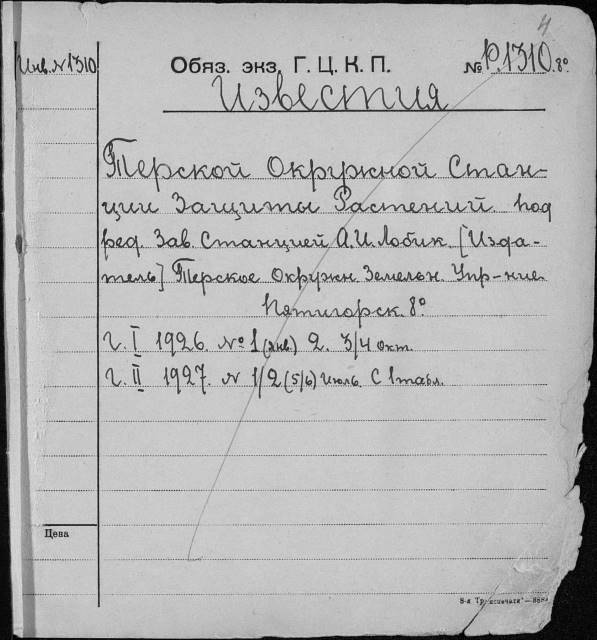 4
Инв. № 1310
Обяз. экз. Г. Ц. К. П. № Р.1310.8°
Известия
Терской Окружной Стан-
ции Защиты Растений. под
ред. Зав. Станцией А.И. Лобик. [Изда-
тель] Терское Окружн. Землеон. Упр-ние.
Пятигорск. 8°.
Г. I 1926. № 1 (янв) 2. 3/4 окт.
Г. II 1927. N 1/2 (5/6) Июль. С 1 табл.
Цена
8-я Тр.